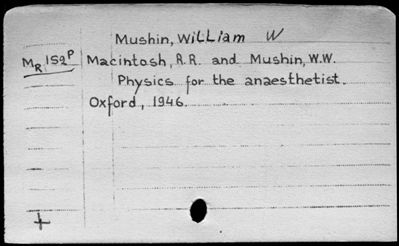 Mushin, William W
MR 152P Macintosh, R.R. and Mushin, W.W.
Physics for the anaesthetist.
Oxford, 1946.
+